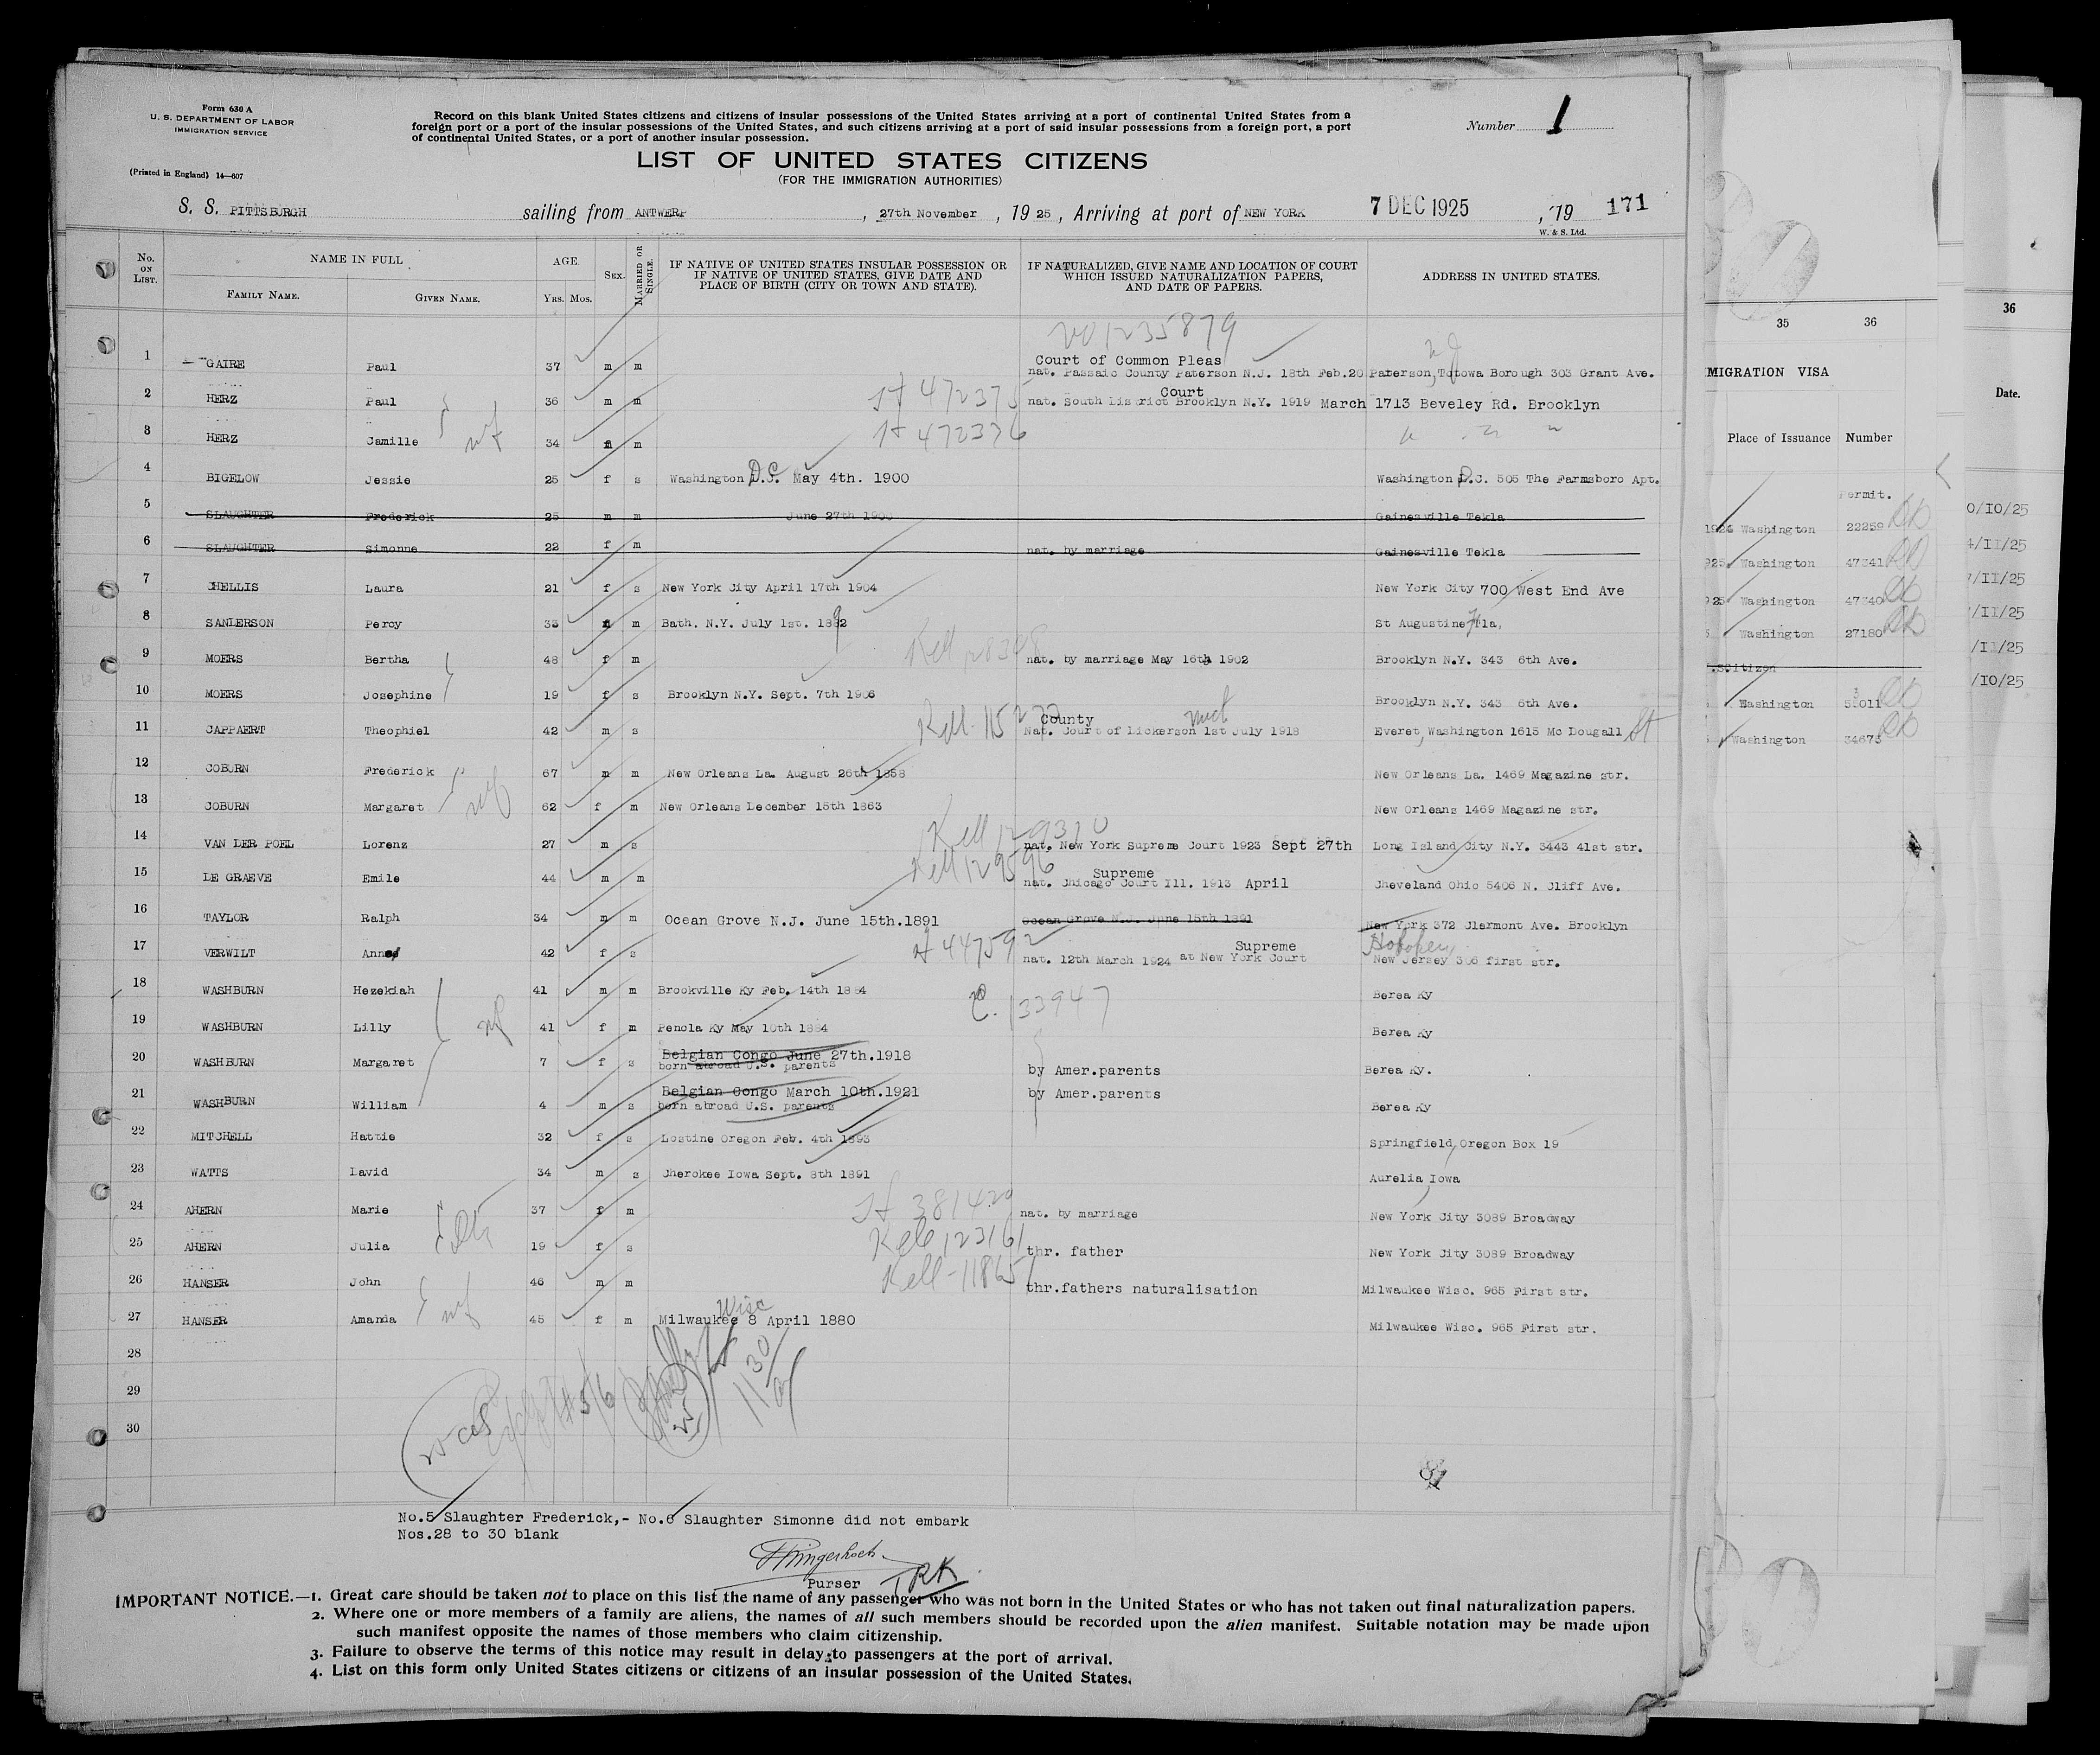 Form 630 A
U. S. DEPARTMENT OF LABOR
IMMIGRATION SERVICE
(Printed in England) 14—607
Record on this blank United States citizens and citizens of insular possessions of the United States arriving at a port of continental United States from a
foreign port or a port of the insular possessions of the United States, and such citizens arriving at a port of said insular possessions from a foreign port, a port
of continental United States, or a port of another insular possession.
Number 1
LIST OF UNITED STATES CITIZENS
(FOR THE IMMIGRATION AUTHORITIES)
S. S. PITTSBURGH sailing from ANTWERP, 27th November, 19 25, Arriving at port of NEW YORK 7 DEC 1925, 19 171
W. & S. Ltd.
No. ON LIST. NAME IN FULL AGE. SEX. MARRIED OR SINGLE. IF NATIVE OF UNITED STATES INSULAR POSSESSION OR IF NATIVE OF UNITED STATES, GIVE DATE AND PLACE OF BIRTH (CITY OR TOWN AND STATE). IF NATURALIZED, GIVE NAME AND LOCATION OF COURT WHICH ISSUED NATURALIZATION PAPERS, AND DATE OF PAPERS. ADDRESS IN UNITED STATES.
FAMILY NAME. GIVEN NAME. YRS. MOS.
1235879
Court of Common Pleas
1 GAIRE Paul 37 m m nat. Passaic County Paterson N.J. 18th Feb.20 Paterson, Totowa Borough 303 Grant Ave.
2 HERZ Paul 36 m m 472375 nat. South District Court Brooklyn N.Y. 1919 March 1713 Beveley Rd. Brooklyn
3 HERZ Camille 34 m 472376 " " "
4 BIGELOW Jessie 25 f s Washington D.C. May 4th. 1900 Washington D.C. 505 The Farmsboro Apt.
5 SLAUGHTER Frederick 25 m m June 27th 1900 Gainesville Tekla
6 SLAUGHTER Simonne 22 f m nat. by marriage Gainesville Tekla
7 CHELLIS Laura 21 f s New York City April 17th 1904 New York City 700 West End Ave
8 SANDERSON Percy 33 m Bath. N.Y. July 1st. 1892 St Augustine Fla,
9 MOERS Bertha 48 f m nat. by marriage May 16th 1902 Brooklyn N.Y. 343 6th Ave.
10 MOERS Josephine 19 f s Brooklyn N.Y. Sept. 7th 1906 Brooklyn N.Y. 343 6th Ave.
11 CAPPAERT Theophiel 42 m s Nat. County Court of Dickerson 1st July 1918 Everet, Washington 1615 Mc Dougall St
12 COBURN Frederick 67 m m New Orleans La. August 26th 1858 New Orleans La. 1469 Magazine str.
13 COBURN Margaret 62 f m New Orleans December 15th 1863 New Orleans 1469 Magazine str.
14 VAN DER POEL Lorenz 27 m s nat. New York Supreme Court 1923 Sept 27th Long Island City N.Y. 3443 41st str.
15 DE GRAEVE Emile 44 m m nat. Chicago Supreme Court Ill. 1913 April Cheveland Ohio 5406 N. Cliff Ave.
16 TAYLOR Ralph 34 m m Ocean Grove N.J. June 15th.1891 Ocean Grove N.J. June 15th 1891 New York 372 Clermont Ave. Brooklyn
17 VERWILT Anna 42 f s 447592 nat. 12th March 1924 at New York Supreme Court Hoboken New Jersey 306 first str.
18 WASHBURN Hezekiah 41 m m Brookville Ky Feb. 14th 1884 Berea Ky
133947
19 WASHBURN Lilly 41 f m Penola Ky May 10th 1884 Berea Ky
20 WASHBURN Margaret 7 f s Belgian Congo June 27th.1918 born abroad U.S. parents by Amer.parents Berea Ky.
21 WASHBURN William 4 m s Belgian Congo March 10th.1921 born abroad U.S. parents by Amer.parents Berea Ky
22 MITCHELL Hattie 32 f s Lostine Oregon Feb. 4th 1893 Springfield, Oregon Box 19
23 WATTS David 34 m s Cherokee Iowa Sept. 8th 1891 Aurelia, Iowa
24 AHERN Marie 37 f m nat. by marriage New York City 3089 Broadway
25 AHERN Julia 19 f s 123161 thr. father New York City 3089 Broadway
26 HANSER John 46 m m thr.fathers naturalisation Milwaukee Wisc. 965 First str.
27 HANSER Amanda 45 f m Milwaukee Wisc 8 April 1880 Milwaukee Wisc. 965 First str.
28
29
30
1130
No.5 Slaughter Frederick,- No.6 Slaughter Simonne did not embark
Nos.28 to 30 blank
Purser
IMPORTANT NOTICE.—1. Great care should be taken not to place on this list the name of any passenger who was not born in the United States or who has not taken out final naturalization papers.
2. Where one or more members of a family are aliens, the names of all such members should be recorded upon the alien manifest. Suitable notation may be made upon
such manifest opposite the names of those members who claim citizenship.
3. Failure to observe the terms of this notice may result in delay to passengers at the port of arrival.
4. List on this form only United States citizens or citizens of an insular possession of the United States.
35 36
MIGRATION VISA
Place of Issuance Number
Permit.
Washington 22259
Washington 47341
Washington 47340
Washington 27180
Citizen
Washington
Washington 34673
36
Date.
0/10/25
4/11/25
7/11/25
/11/25
/11/25
/10/25